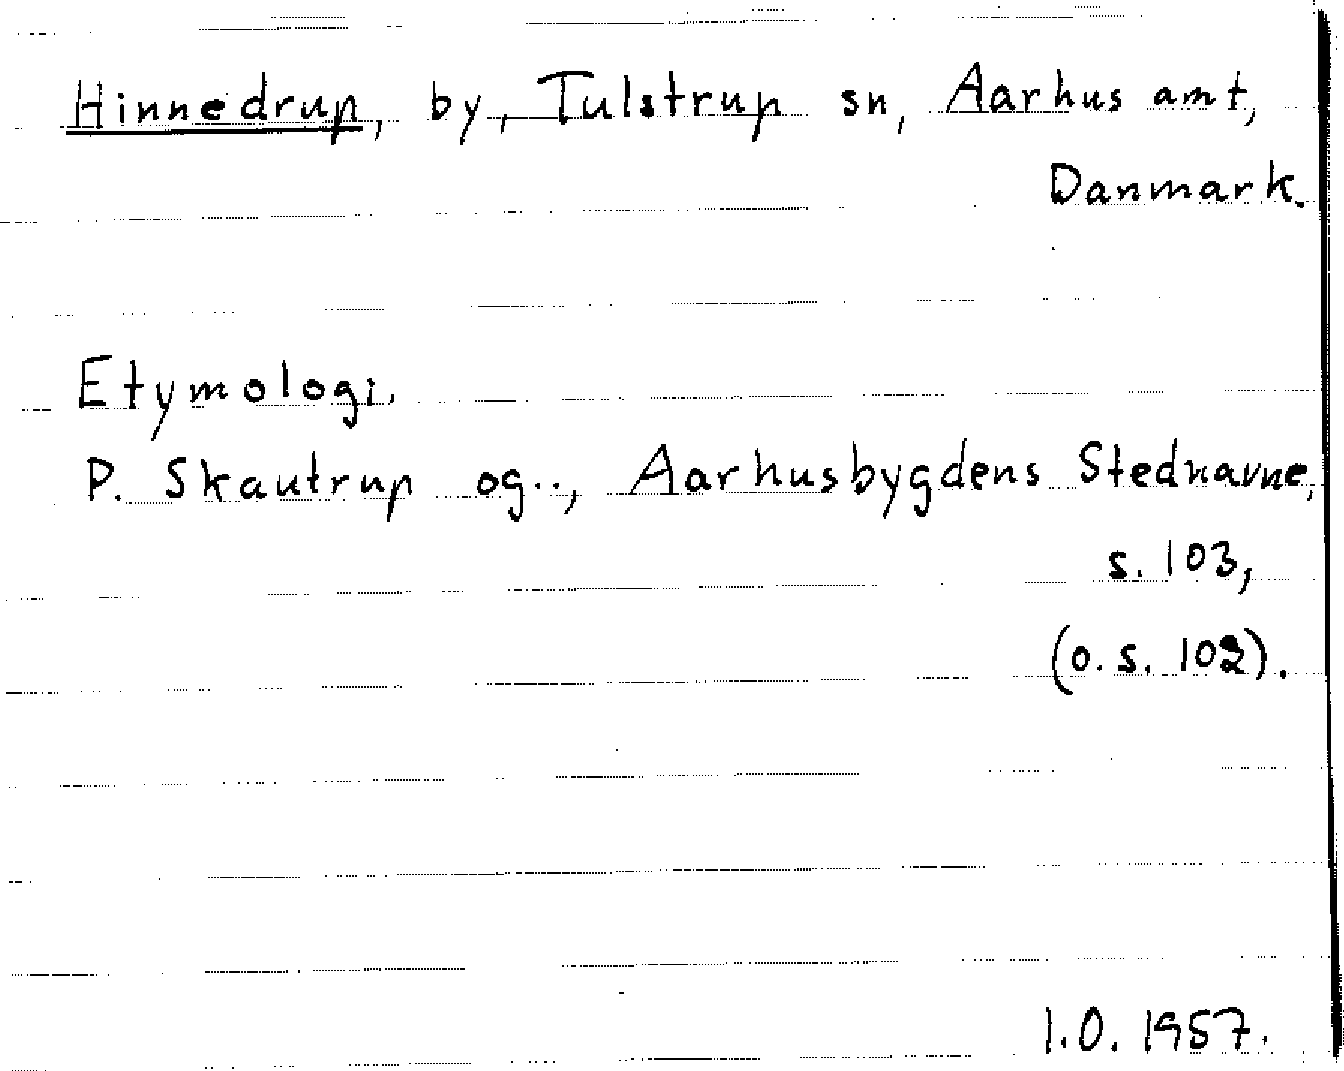 Hinnedrup, by, Tulstrup sn, Aarhus amt,
Danmark.
Etymologi.
P. Skautrup og.., Aarhusbygdens Stednavne,
s. 103,
(o. s. 102).
I.O. 1957.